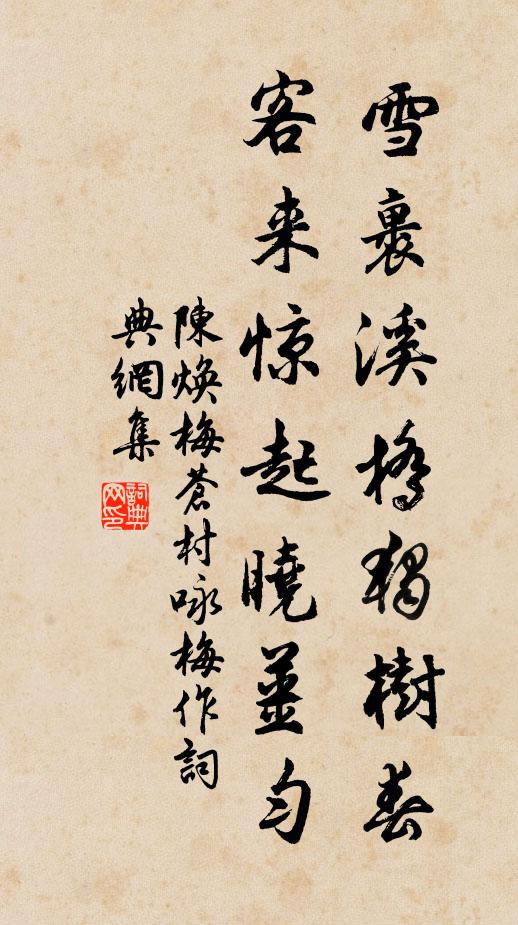 雪裏溪橋獨樹春
客来惊起曉薑匀
陳煥梅蒼村咏梅作詞
典網集
詞典网印